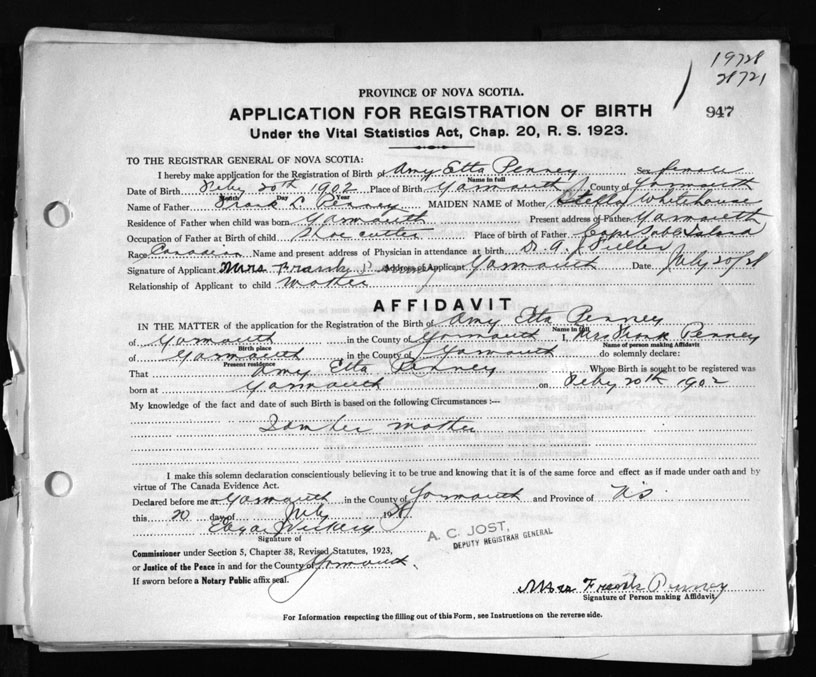 19728
28721
947
PROVINCE OF NOVA SCOTIA.
APPLICATION FOR REGISTRATION OF BIRTH
Under the Vital Statistics Act, Chap. 20, R. S. 1923.
TO THE REGISTRAR GENERAL OF NOVA SCOTIA:
I hereby make application for the Registration of Birth of Amy Etta Penney Sex female
Name in full
Date of Birth Feby 20th 1902 Place of Birth Yarmouth County of Yarmouth
Month Day Year
Name of Father Frank L Penney MAIDEN NAME of Mother Etta Whitehouse
Residence of Father when child was born Yarmouth Present address of Father Yarmouth
Occupation of Father at Birth of child Place of Birth of Father Cape Sable Island
Race Canadian Name and present address of Physician in attendance at birth Dr. A. J. Fuller
Signature of Applicant Mrs. Frank P. Address of Applicant Yarmouth Date July 20/28
Relationship of Applicant to child Mother
AFFIDAVIT
IN THE MATTER of the application for the Registration of the Birth of Amy Etta Penney
Name in full
of Yarmouth in the County of Yarmouth I, Mrs Frank Penney
Birth place Name of person making Affidavit
of Yarmouth in the County of Yarmouth do solemnly declare:
Present residence
That Amy Etta Penney Whose Birth is sought to be registered was
born at Yarmouth on Feby 20th 1902
My knowledge of the fact and date of such Birth is based on the following Circumstances :—
I am her mother
I make this solemn declaration conscientiously believing it to be true and knowing that it is of the same force and effect as if made under oath and by
virtue of The Canada Evidence Act.
Declared before me at Yarmouth in the County of Yarmouth and Province of N.S.
this 20 day of July 1928
Edgar Vickery
Signature of
A. C. JOST,
DEPUTY REGISTRAR GENERAL
Commissioner under Section 5, Chapter 38, Revised Statutes, 1923,
or Justice of the Peace in and for the County of Yarmouth.
If sworn before a Notary Public affix seal.
Mrs Frank Penney
Signature of Person making Affidavit
For Information respecting the filling out of this Form, see Instructions on the reverse side.